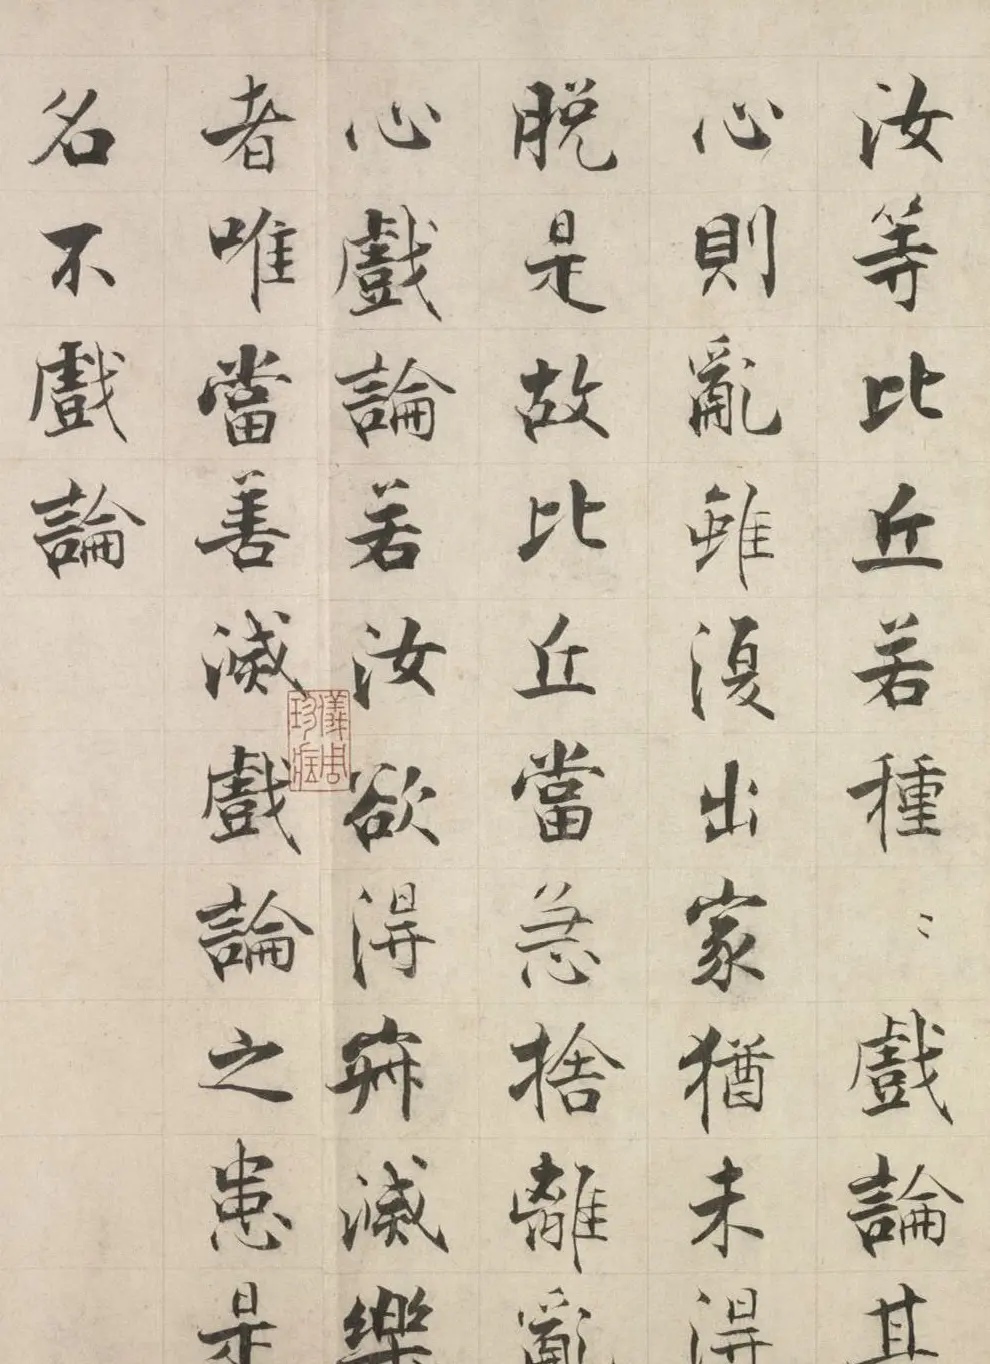 汝等比丘若種〻戲論其
心則亂雖復出家猶未得
脫是故比丘當急捨離亂
心戲論若汝欲得寂滅樂
者唯當善滅戲論之患是
名不戲論
儀周珍藏